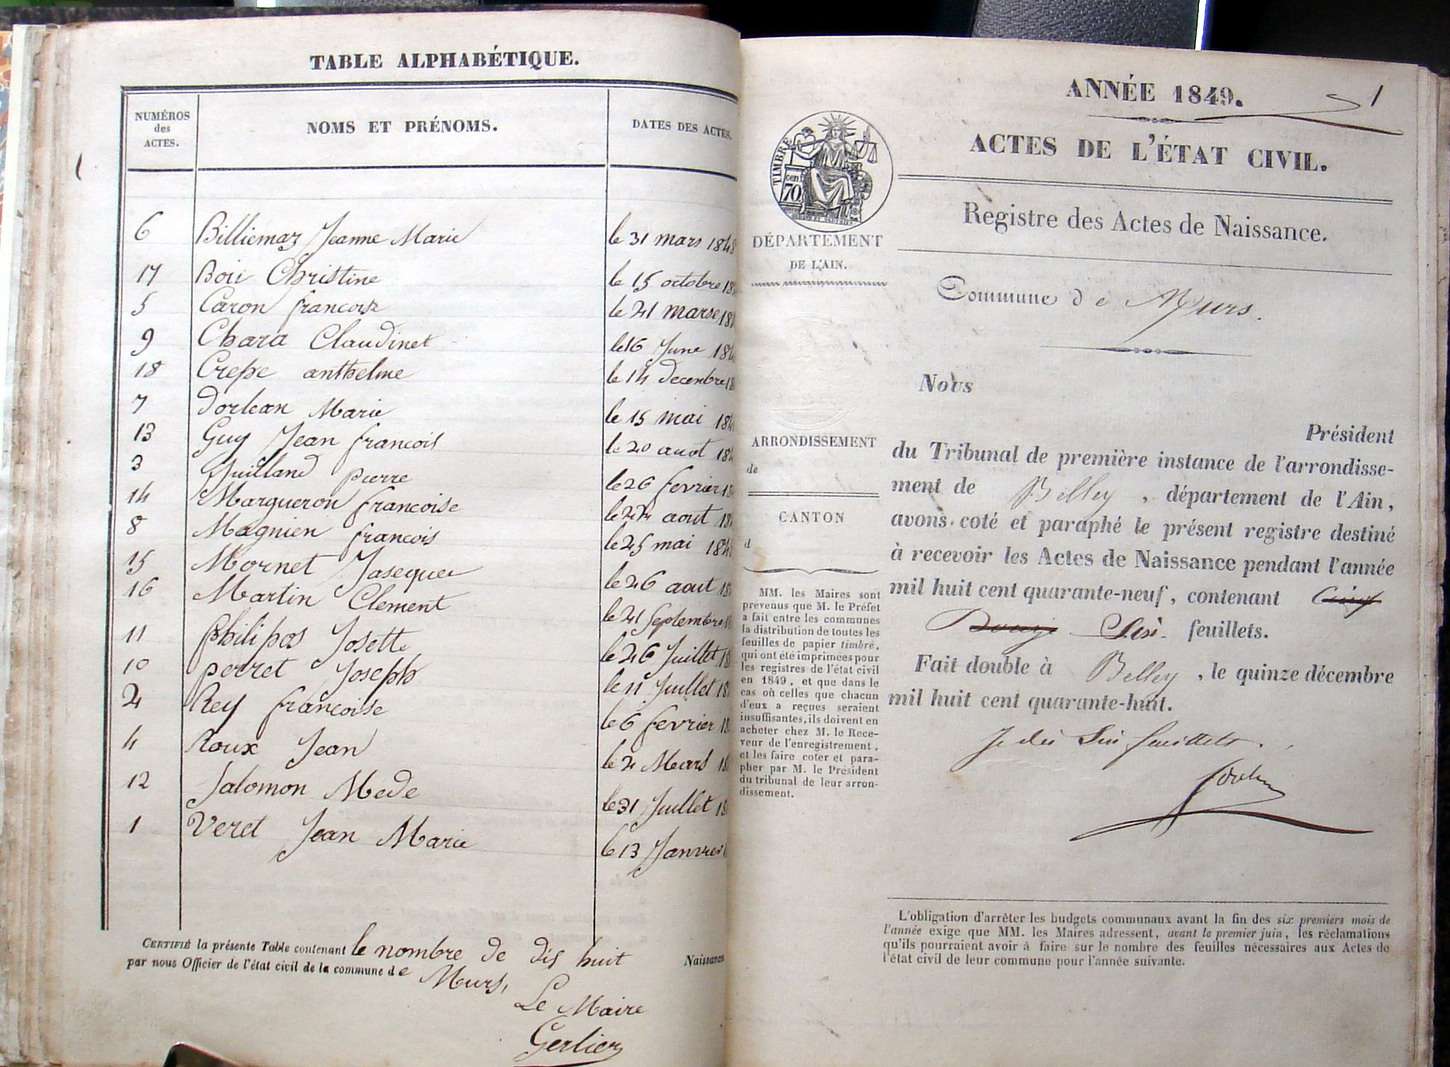 TABLE ALPHABÉTIQUE.
NUMÉROS des ACTES.
NOMS ET PRÉNOMS.
DATES DES ACTES.
6 Billiemaz Jeanne Marie le 31 mars 184
17 Boir Christine le 15 octobre 18
5 Caron francoise le 21 marse 18
9 Chara Claudinet le 16 June 18
18 Crepe anthelme le 14 decembre 18
7 Dorlean Marie le 15 mai 184
13 Guy Jean francois le 20 auot 18
3 Guilland pierre le 26 fevrier 18
14 Margueron francoise le 24 aout 18
8 Magnien francois le 25 mai 184
15 Mornet Jasequer le 26 aout 18
16 Martin Clement le 21 Septembre
11 philipos Josette le 26 Juillet 18
10 perret Joseph le 11 Juillet 18
2 Rey francoise le 6 fevrier 18
4 Roux Jean le 2 Mars 18
12 Salomon Mede le 31 Juillet 18
1 Veret Jean Marie le 13 Janvier
CERTIFIÉ la présente Table contenant le nombre de dis huit Naissances
par nous Officier de l'état civil de la commune de Murs,
Le Maire
Gerlier
ANNÉE 1849. 1
ACTES DE L'ÉTAT CIVIL.
Registre des Actes de Naissance.
Commune de Murs.
TIMBRE
cent
70
DÉPARTEMENT
DE L'AIN.
ARRONDISSEMENT
de
CANTON
d
MM. les Maires sont
prévenus que M. le Préfet
a fait entre les communes
la distribution de toutes les
feuilles de papier timbré,
qui ont été imprimées pour
les registres de l'état civil
en 1849, et que dans le
cas où celles que chacun
d'eux a reçues seraient
insuffisantes, ils doivent en
acheter chez M. le Rece-
veur de l'enregistrement,
et les faire coter et para-
pher par M. le Président
du tribunal de leur arron-
dissement.
Nous
Président
du Tribunal de première instance de l'arrondisse-
ment de Belley, département de l'Ain,
avons coté et paraphé le présent registre destiné
à recevoir les Actes de Naissance pendant l'année
mil huit cent quarante-neuf, contenant Cinq
Douze Six feuillets.
Fait double à Belley, le quinze décembre
mil huit cent quarante-huit.
Je dis Six feuillets.
L'obligation d'arrêter les budgets communaux avant la fin des six premiers mois de
l'année exige que MM. les Maires adressent, avant le premier juin, les réclamations
qu'ils pourraient avoir à faire sur le nombre des feuilles nécessaires aux Actes de
l'état civil de leur commune pour l'année suivante.